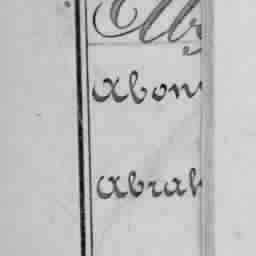 Ab
Abon
Abrah